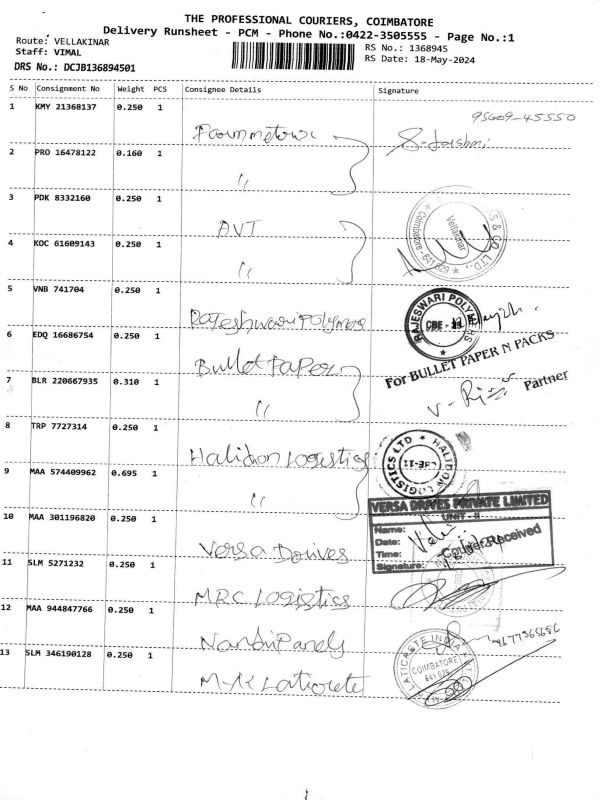 THE PROFESSIONAL COURIERS, COIMBATORE
Delivery Runsheet - PCM - Phone No.:0422-3505555 - Page No.:1
Route: VELLAKINAR
RS No.: 1368945
Staff: VIMAL
RS Date: 18-May-2024
DRS No.: DCJB136894501
S No Consignment No Weight PCS Consignee Details Signature
1 KMY 21368137 0.250 1
95609-45550
2 PRO 16478122 0.160 1
"
3 PDK 8332160 0.250 1
AVT
4 KOC 61609143 0.250 1
"
Vellakinar
5 VNB 741704 0.250 1
Rajeshwari Polymers
RAJESHWARI POLYMERS
6 EDQ 16686754 0.250 1
Bullet Paper
For BULLET PAPER N PACKS
7 BLR 220667935 0.310 1
"
Partner
8 TRP 7727314 0.250 1
Halidon Logestics
HALIDON LOGISTICS LTD
CBE-11
9 MAA 574409962 0.695 1
"
VERSA DRIVES PRIVATE LIMITED
UNIT - II
Name:
Date:
Time:
Signature:
Courier Received
10 MAA 301196820 0.250 1
Versa Drives
11 SLM 5271232 0.250 1
MRC Logistics
12 MAA 944847766 0.250 1
Nandi Panels
13 SLM 346190128 0.250 1
M-K Laticrete
LATICRETE INDIA
COIMBATORE
641 029
1